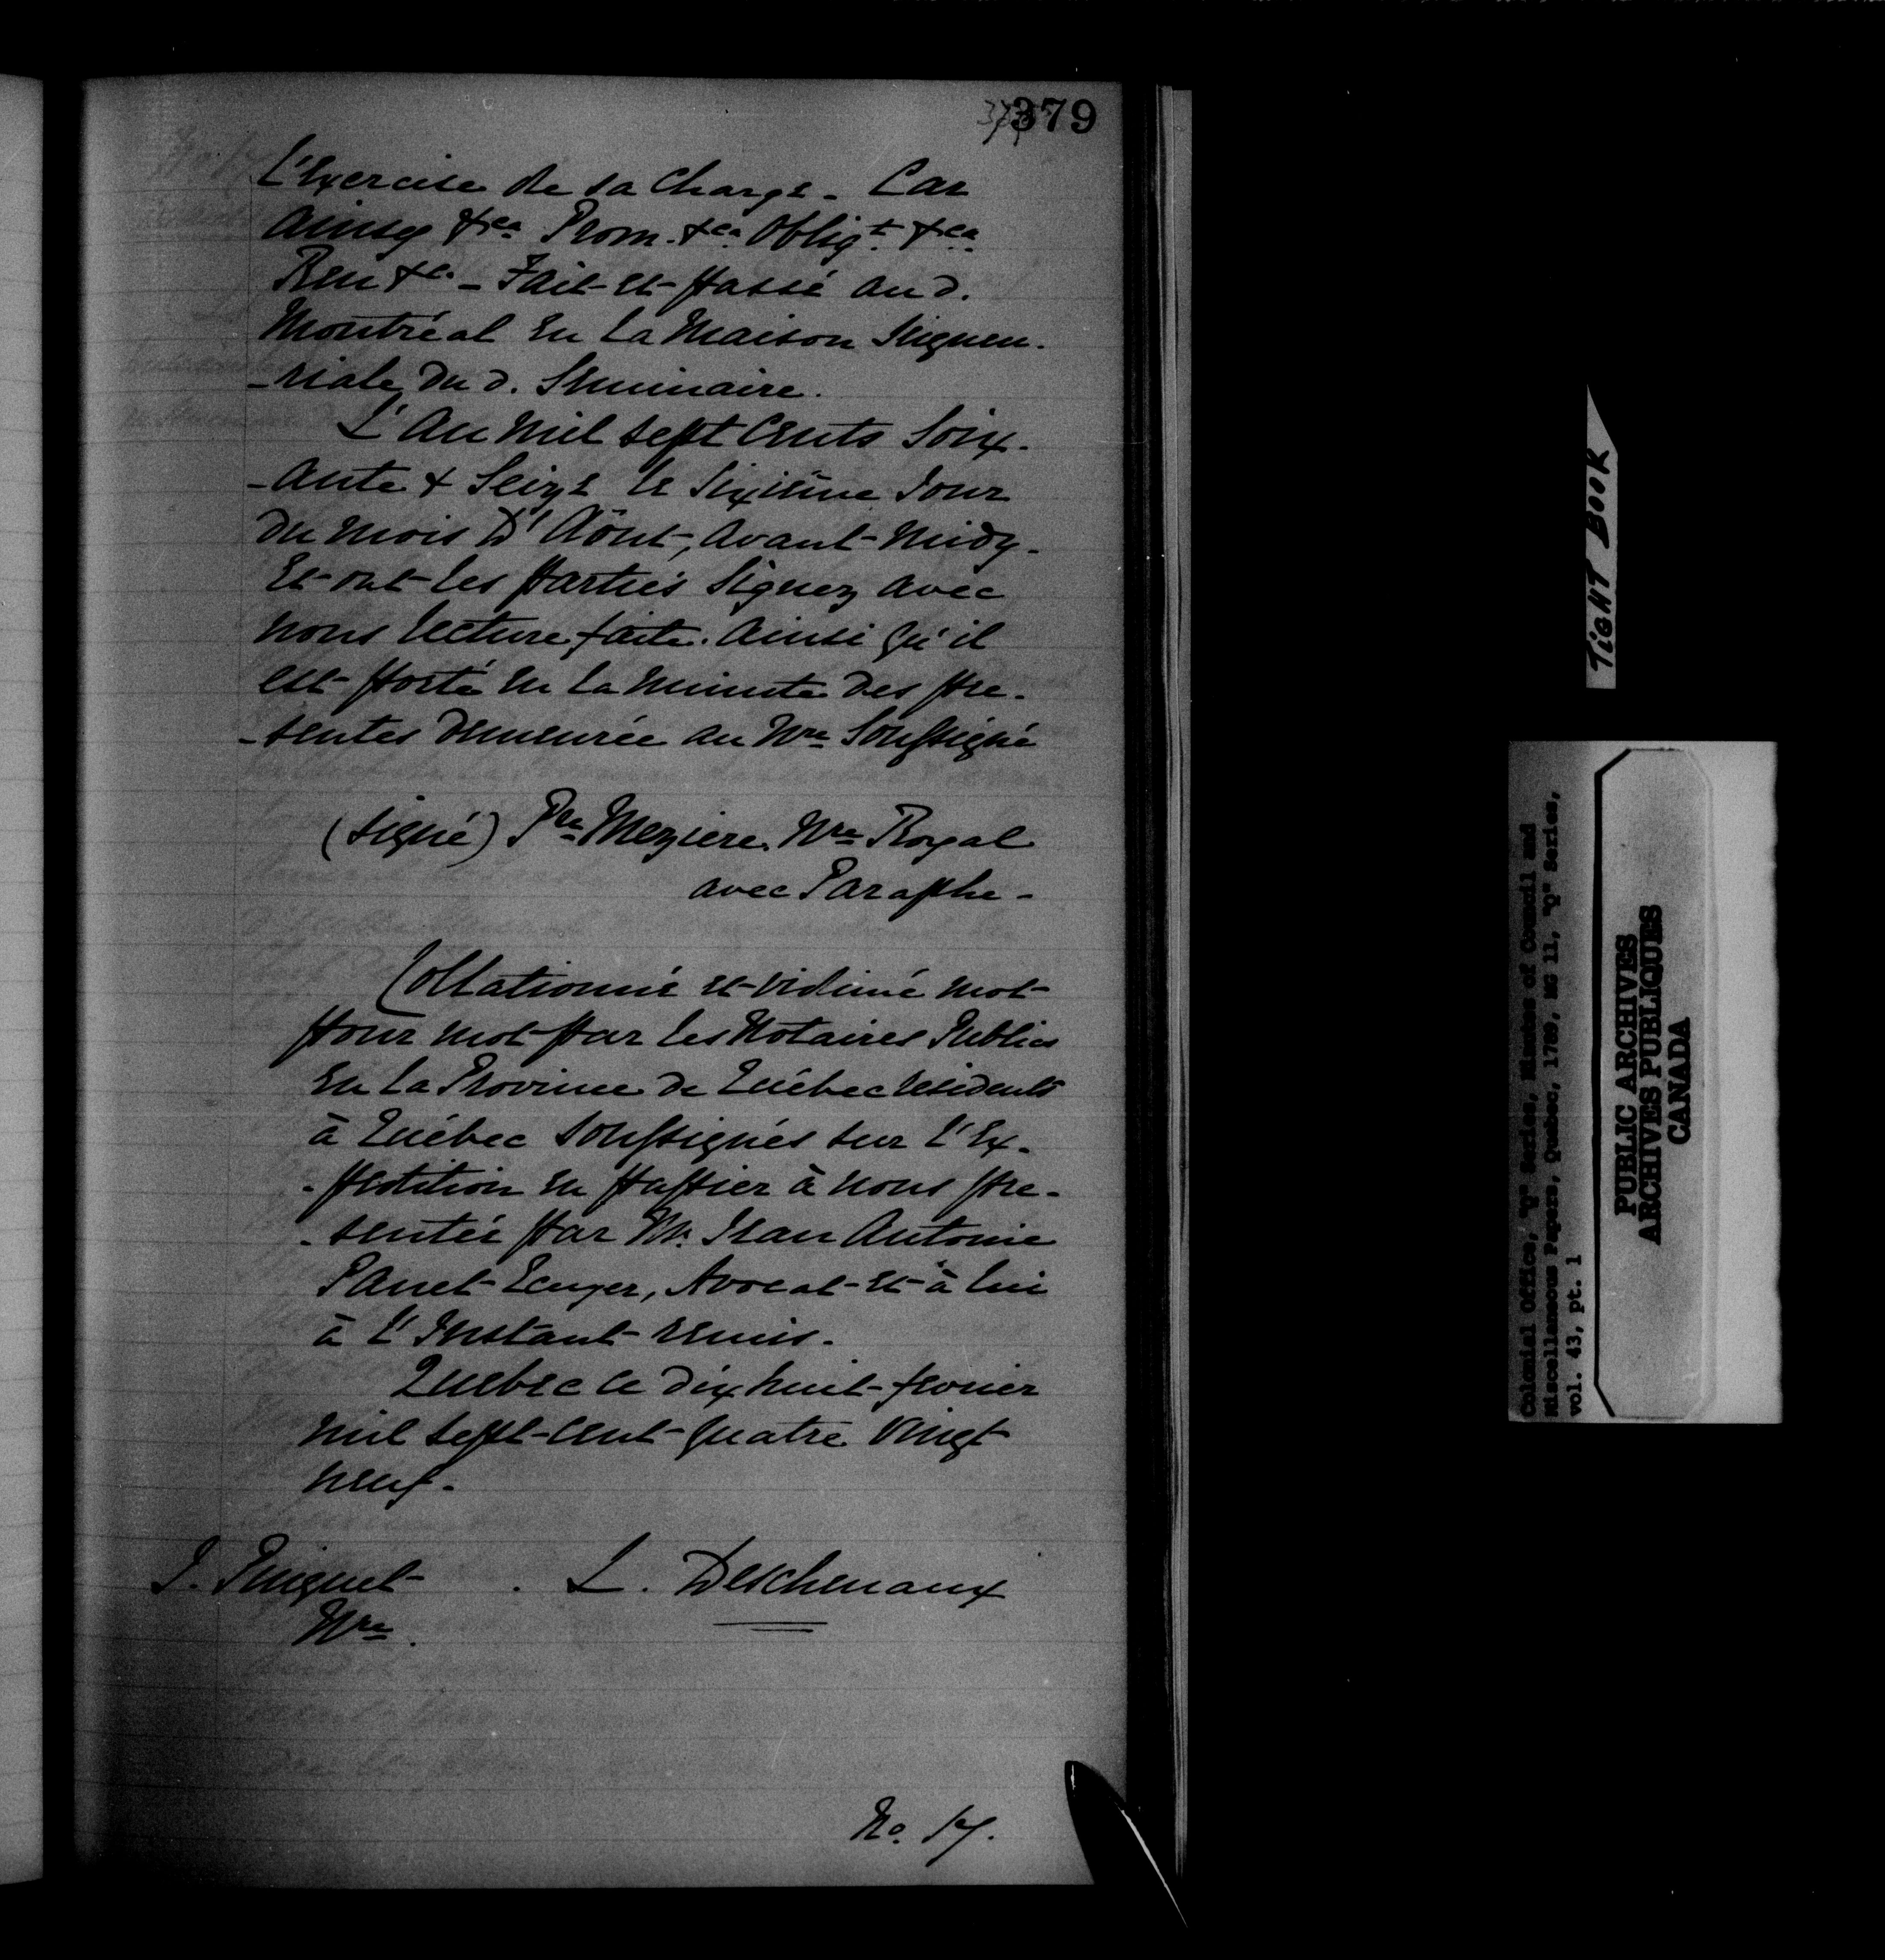 379
L'Exercise de sa Charge - Car
ainsy &ca Prom. &ca Oblig.t &ca
Ren &c. - Fait et passé au d.
Montréal En la Maison Seigneu-
-riale du d. Séminaire.
L'an mil sept Cents Soix-
-ante & Seize le Sixième Jour
du mois D'Aôut, avant Midy.
Et ont les partiés Signez avec
nous lecture faite. ainsi qu'il
est porté en la minute des pre-
-sentes demeurée au Nre Soussigné
(signé) Pre Meziere. Nre Royal
avec Paraphe -
Collationné et vidimé mot
pour mot par les Notaires Publics
En la Province de Québec résidents
à Québec Soussignés sur l'Ex-
-pedition en papier à nous pre-
-sentée par Mr. Jean Antoine
Panet Ecuyer, Avocat et à lui
à l'Instant remis.
Quebec le dix huit fevrier
mil sept cent quatre Vingt
neuf.
J. Pinguet . L. Deschenaux
Nre.
No. 17.
TIGHT BOOK
Colonial Office, "Q" Series, Minutes of Council and
Miscellaneous Papers, Quebec, 1789, MG 11, "Q" Series,
vol. 43, pt. 1
PUBLIC ARCHIVES
ARCHIVES PUBLIQUES
CANADA